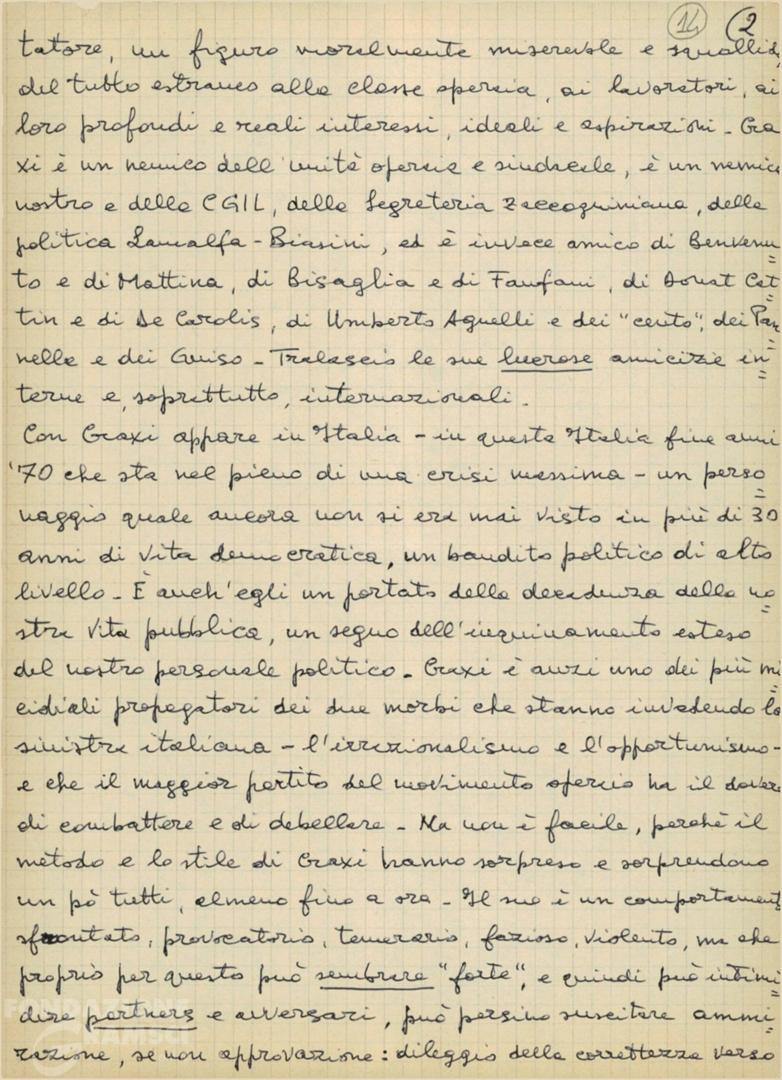 14 2
tatore, un figuro moralmente miserevole e squallido,
del tutto estraneo alla classe operaia, ai lavoratori, ai
loro profondi e reali interessi, ideali e aspirazioni - Cra
xi è un nemico dell'unità operaia e sindacale, è un nemico
nostro e della CGIL, della Segreteria Zaccagniniana, della
politica Lamalfa - Biasini, ed è invece amico di Benvenu=
to e di Mattina, di Bisaglia e di Fanfani, di Donat Cat=
tin e di De Carolis, di Umberto Agnelli e dei "cento", dei Pan=
nella e dei Guiso - Tralascio le sue lucrose amicizie in=
terne e, soprattutto, internazionali.
Con Craxi appare in Italia - in questa Italia fine anni
'70 che sta nel pieno di una crisi massima - un perso=
naggio quale ancora non si era mai visto in più di 30
anni di vita democratica, un bandito politico di alto
livello - È anch'egli un portato della decadenza della no=
stra vita pubblica, un segno dell'inquinamento esteso
del nostro personale politico - Craxi è anzi uno dei più mi=
cidiali propagatori dei due morbi che stanno invadendo la
sinistra italiana - l'irrazionalismo e l'opportunismo -
e che il maggior partito del movimento operaio ha il dovere
di combattere e di debellare - Ma non è facile, perché il
metodo e lo stile di Craxi hanno sorpreso e sorprendono
un pò tutti, almeno fino a ora - Il suo è un comportamento
sfrontato, provocatorio, temerario, fazioso, violento, ma che
proprio per questo può sembrare "forte", e quindi può intimi=
dire partners e avversari, può persino suscitare ammi=
razione, se non approvazione: dileggio della correttezza verso
FONDAZIONE
GRAMSCI